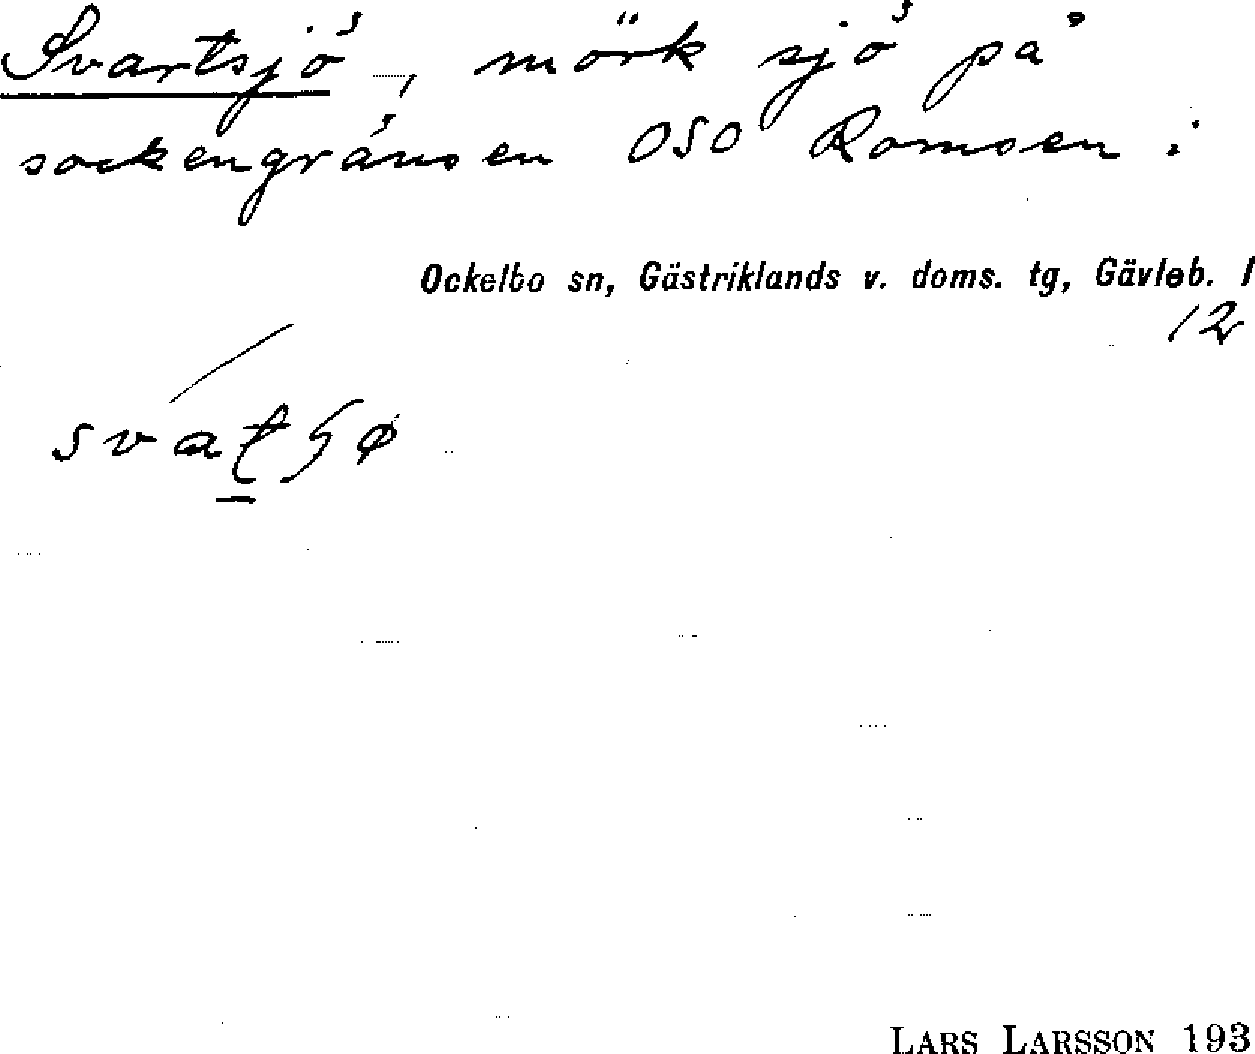 Svartsjö, mörk sjö på
sockengränsen OSO Romsen i
Ockelbo sn, Gästriklands v. doms. tg, Gävleb. l
12
LARS LARSSON 193